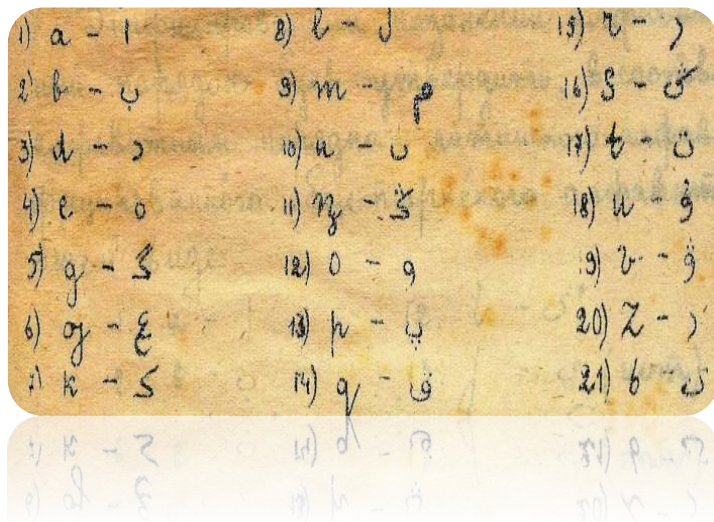 1) a - ا
2) b - ب
3) d - د
4) e - ه
5) g - گ
6) ƣ - ع
7) k - ک
8) l - ل
9) m - م
10) n - ن
11) ꞑ - ڭ
12) o - و
13) p - پ
14) q - ق
15) r - ر
16) s - س
17) t - ت
18) u - ۇ
19) v - ۋ
20) z - ز
21) ь - ى